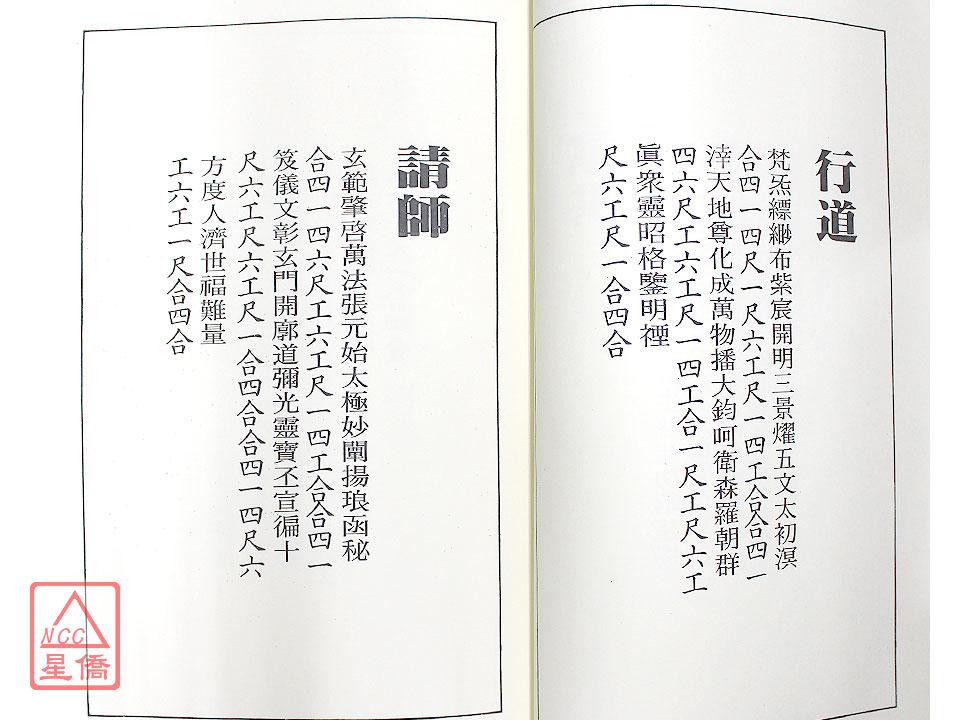 行道
梵炁縹緲布紫宸開明三景燿五文太初溟
合四一四尺一尺六工尺一四工合合四一
涬天地尊化成萬物播大鈞呵衛森羅朝群
四六尺工六工尺一四工合一尺工尺六工
眞衆靈昭格鑒明禋
尺六工尺一合四合
請師
玄範肇啓萬法張元始太極妙闡揚琅函秘
合四一四六尺工六工尺一四工合合四一
笈儀文彰玄門開廓道彌光靈寶丕宣徧十
尺六工尺六工尺一合四合合四一四尺六
方度人濟世福難量
工六工一尺合四合
NCC
星僑